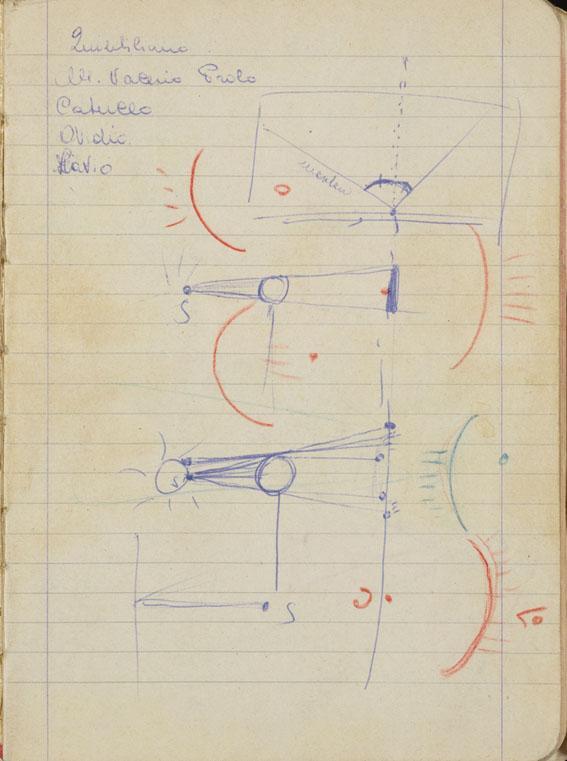 Quintiliano
M. Valerio Probo
Catullo
Ovidio
Flavio
S
S